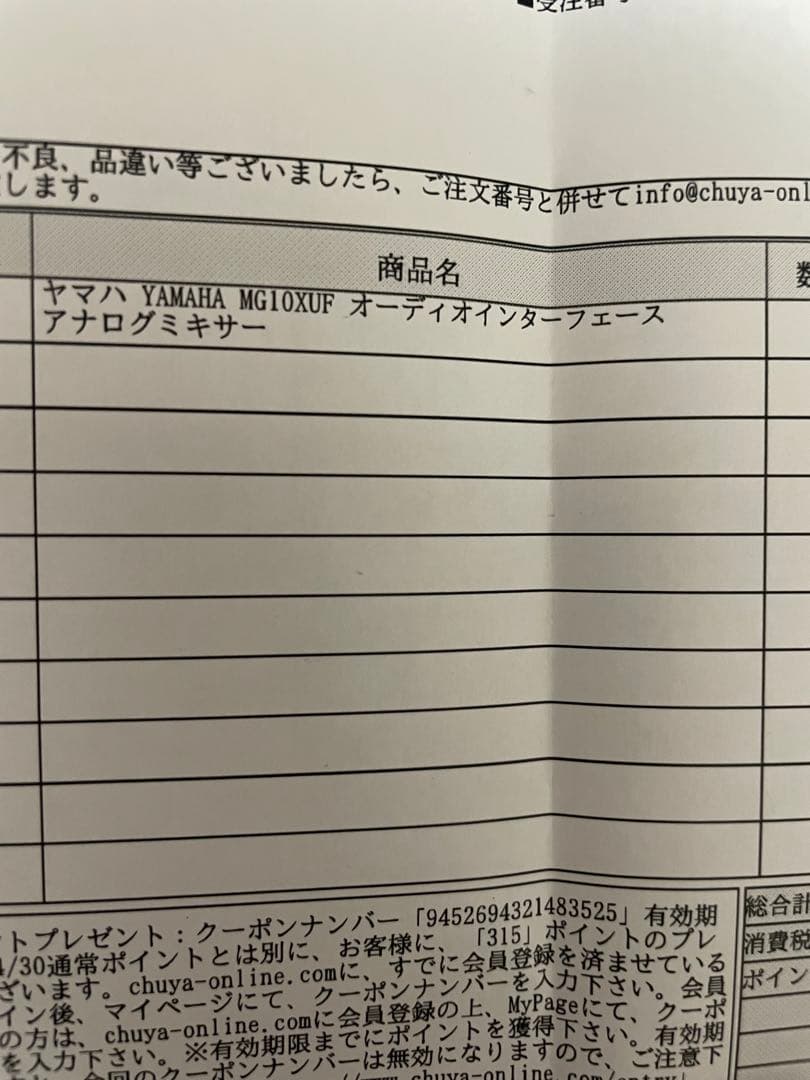 ■受注番号
不良、品違い等ございましたら、ご注文番号と併せてinfo@chuya-onl
します。
商品名
数
ヤマハ YAMAHA MG10XUF オーディオインターフェース
アナログミキサー
トプレゼント：クーポンナンバー「9452694321483525」有効期
4/30通常ポイントとは別に、お客様に、「315」ポイントのプレ
ざいます。chuya-online.comに、すでに会員登録を済ませている
イン後、マイページにて、クーポンナンバーを入力下さい。会員
の方は、chuya-online.comに会員登録の上、MyPageにて、クーポ
を入力下さい。※有効期限までにポイントを獲得下さい。有効期
今回のクーポンナンバーは無効になりますので、ご注意下
www.chuya-online.com/entry/
総合計
消費税
ポイン